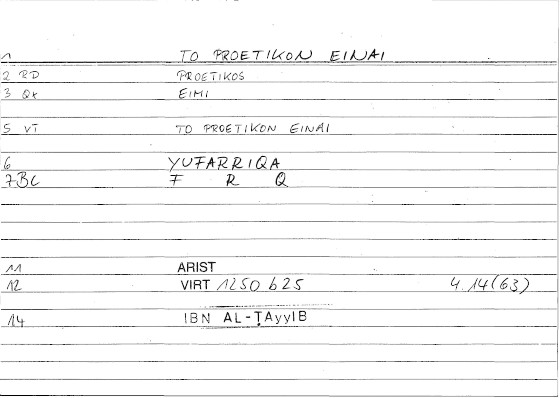 1 TO PROETIKON EINAI
2 RD PROETIKOS
3 Qk EIMI
5 VT TO PROETIKON EINAI
6 YUFARRIQA
7BC F R Q
11 ARIST
12 VIRT 1250 b25 4.14(63)
14 IBN AL-ṬAyyIB